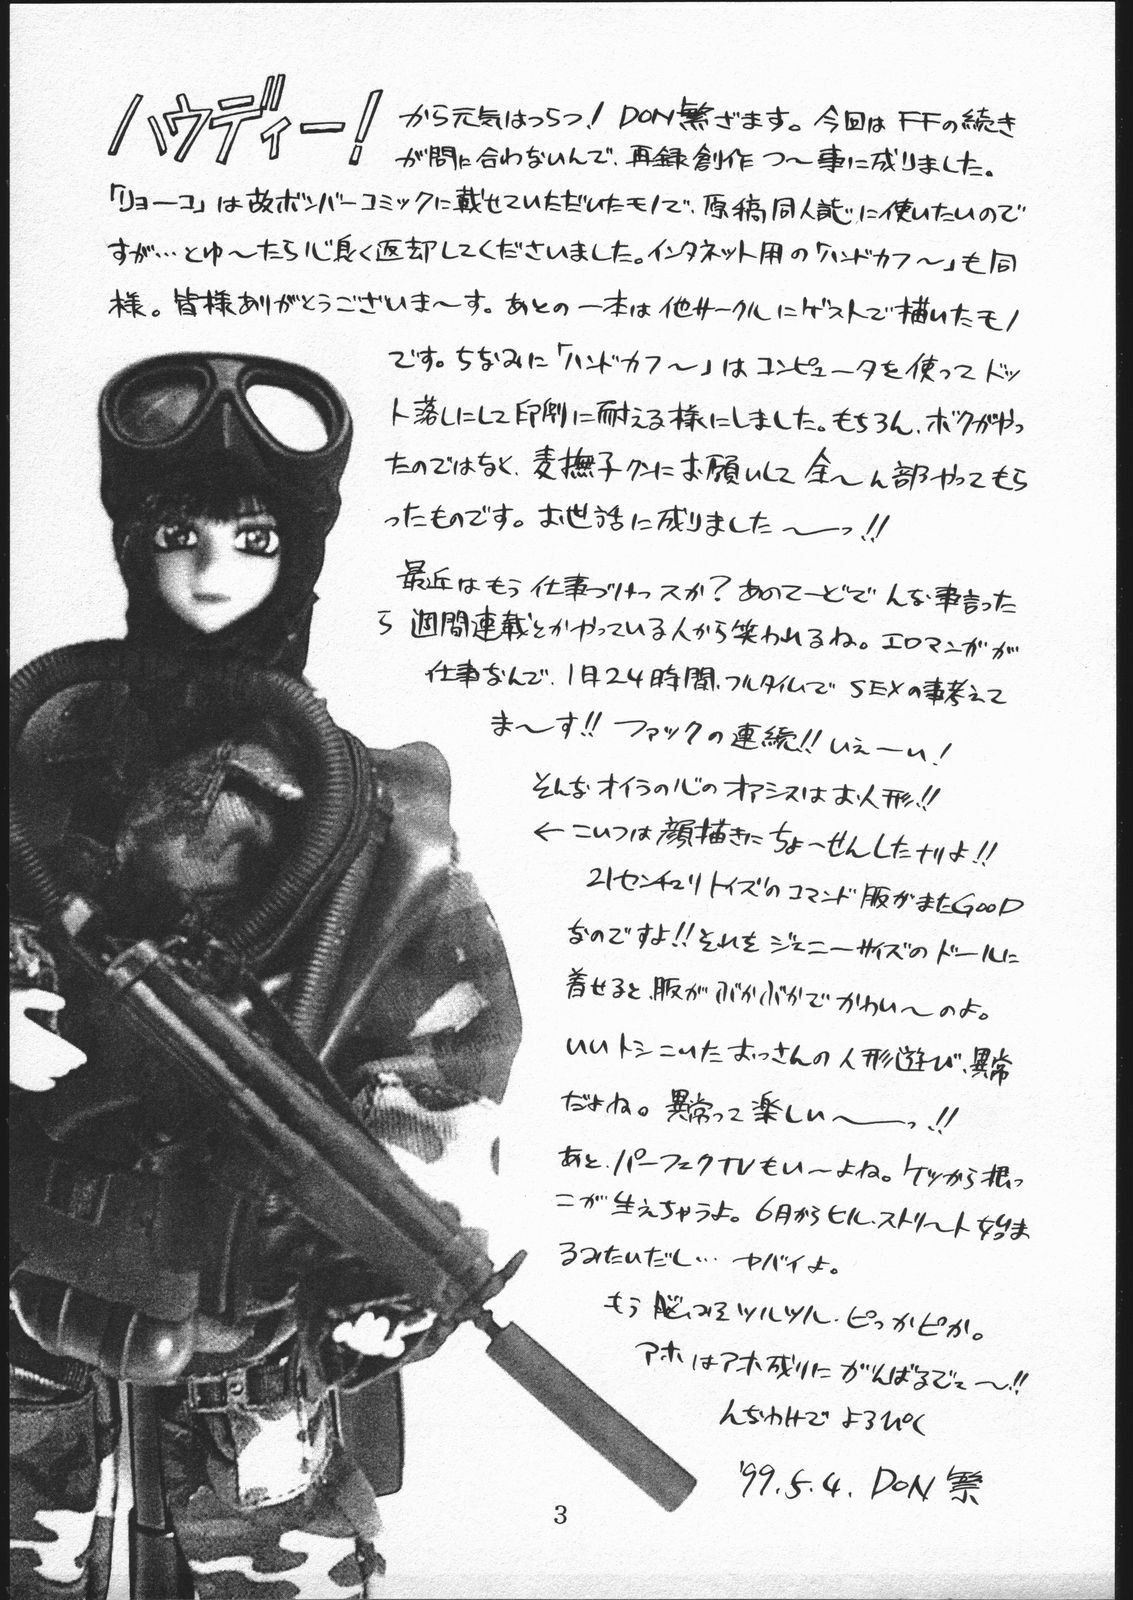 ハウディー! から元気はっらつ! DON繁ざます。今回はFFの続き
が間に合わないんで、再録創作つ〜事に成りました。
「リョーコ」は故ボンバーコミックに載せていただいたモノで、原稿同人誌に使いたいので
すが…とゆ〜たら心良く返却してくださいました。インタネット用の「ハンドカフ〜」も同
様。皆様ありがとうございま〜す。あとの一本は他サークルにゲストで描いたモノ
です。ちなみに「ハンドカフ〜」はコンピュータを使ってドッ
ト落しにして印刷に耐える様にしました。もちろん、ボクがやっ
たのではなく、麦撫子クンにお願いして全〜ん部やってもら
ったものです。お世話に成りました〜ーっ!!
最近はもう仕事づけっスか?あのてーどでんな事言った
ら週間連載とかやっている人から笑われるね。エロマンガが
仕事なんで、1日24時間、フルタイムでSEXの事考えて
ま〜す!! ファックの連続!! いぇーい!
そんなオイラの心のオアシスはお人形!!
←こいつは顔描きにちょーせんしたナリよ!!
21センチュリトイズのコマンド服がまたGOOD
なのですよ!!それをジェニーサイズのドールに
着せると、服がぶかぶかでかわい〜のよ。
いいトシこいたおっさんの人形遊び、異常
だよね。異常って楽しい〜ーっ!!
あと、パーフェクTVもい〜よね。ケツから根っ
こが生えちゃうよ。6月からヒル・ストリート始ま
るみたいだし…ヤバイよ。
もう脳みそツルツル・ピっかピか。
アホはアホ成りにがんばるでェ〜!!
んぢわけでよろぴく
'99.5.4. DON繁
3